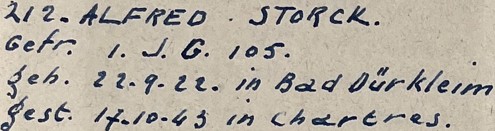 212. ALFRED . STORCK.
Gefr. 1. J. G. 105.
geb. 22.9.22. in Bad Dürkleim
gest. 17.10.43 in Chartres.